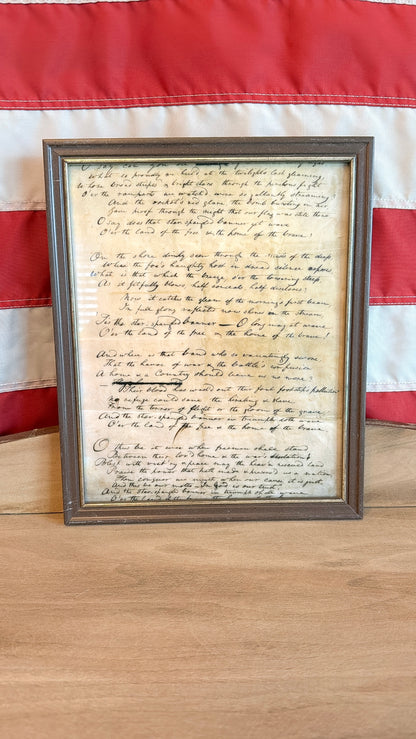 O say can you see
What so proudly we hail'd at the twilight's last gleaming,
Whose broad stripes & bright stars through the perilous fight
O'er the ramparts we watch'd, were so gallantly streaming?
And the rocket's red glare, the bomb bursting in air,
Gave proof through the night that our flag was still there
O say does that star spangled banner yet wave
O'er the land of the free & the home of the brave?
On the shore dimly seen through the mists of the deep,
Where the foe's haughty host in dread silence reposes,
What is that which the breeze, o'er the towering steep,
As it fitfully blows, half conceals, half discloses?
Now it catches the gleam of the morning's first beam,
In full glory reflected now shines in the stream,
'Tis the star-spangled banner — O long may it wave
O'er the land of the free & the home of the brave!
And where is that band who so vauntingly swore,
That the havoc of war & the battle's confusion
A home & a Country should leave us no more?
Their blood has wash'd out their foul footstep's pollution.
No refuge could save the hireling & slave
From the terror of flight or the gloom of the grave,
And the star-spangled banner in triumph doth wave
O'er the land of the free & the home of the brave.
O thus be it ever when freemen shall stand
Between their lov'd home & the war's desolation!
Blest with vict'ry & peace may the heav'n rescued land
Praise the power that hath made & preserv'd us a nation!
Then conquer we must, when our cause it is just,
And this be our motto — "In God is our trust,"
And the star-spangled banner in triumph shall wave
O'er the land of the free & the home of the